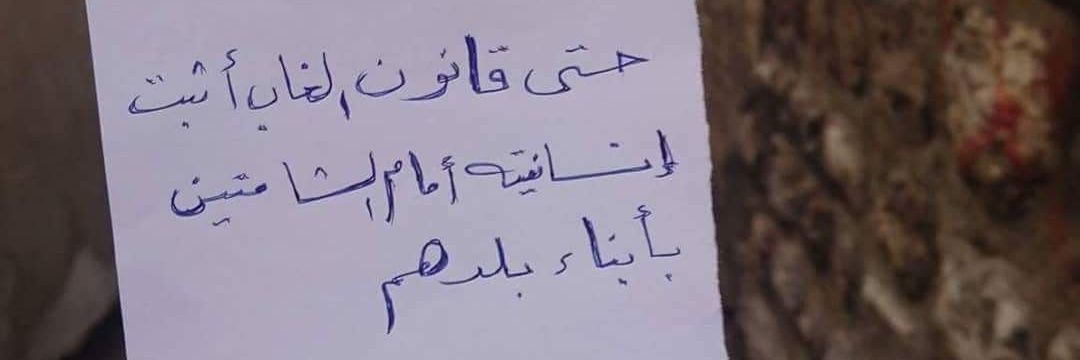 حتى قانون الغاب أثبت
إنسانيته أمام الشامتين
بأبناء بلدهم